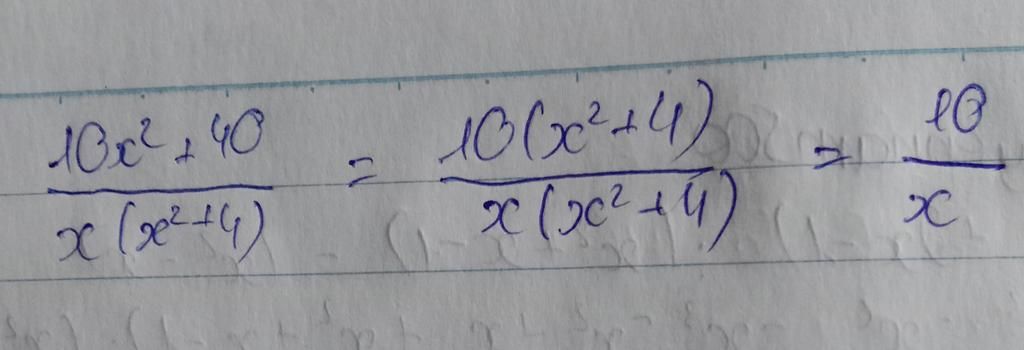 \frac{10x^2+40}{x(x^2+4)} = \frac{10(x^2+4)}{x(x^2+4)} = \frac{10}{x}